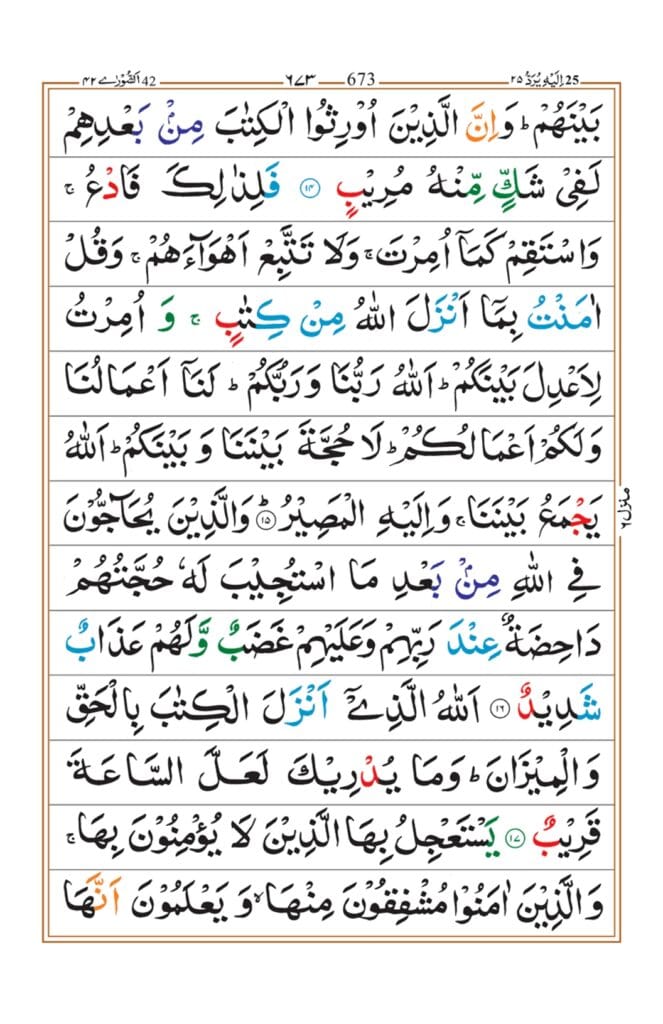 اِلَيْهِ يُرَدُّ ٢٥ 25 673 ٦٧٣ 42 اَلشُّوْرٰى ٤٢
بَيْنَهُمْ ؕ وَاِنَّ الَّذِيْنَ اُوْرِثُوا الْكِتٰبَ مِنْۢ بَعْدِهِمْ
لَفِيْ شَكٍّ مِّنْهُ مُرِيْبٍ ۝١٤ فَلِذٰلِكَ فَادْعُ ۚ
وَاسْتَقِمْ كَمَاۤ اُمِرْتَ ۚ وَلَا تَتَّبِعْ اَهْوَآءَهُمْ ۚ وَقُلْ
اٰمَنْتُ بِمَاۤ اَنْزَلَ اللّٰهُ مِنْ كِتٰبٍ ۚ وَ اُمِرْتُ
لِاَعْدِلَ بَيْنَكُمْ ؕ اَللّٰهُ رَبُّنَا وَرَبُّكُمْ ؕ لَنَاۤ اَعْمَالُنَا
وَلَكُمْ اَعْمَالُكُمْ ؕ لَا حُجَّةَ بَيْنَنَا وَ بَيْنَكُمْ ؕ اَللّٰهُ
يَجْمَعُ بَيْنَنَا ۚ وَاِلَيْهِ الْمَصِيْرُ ؕ۝١٥ وَالَّذِيْنَ يُحَآجُّوْنَ
فِي اللّٰهِ مِنْۢ بَعْدِ مَا اسْتُجِيْبَ لَهٗ حُجَّتُهُمْ
دَاحِضَةٌ عِنْدَ رَبِّهِمْ وَعَلَيْهِمْ غَضَبٌ وَّلَهُمْ عَذَابٌ
شَدِيْدٌ ۝١٦ اَللّٰهُ الَّذِيْۤ اَنْزَلَ الْكِتٰبَ بِالْحَقِّ
وَالْمِيْزَانَ ؕ وَمَا يُدْرِيْكَ لَعَلَّ السَّاعَةَ
قَرِيْبٌ ۝١٧ يَسْتَعْجِلُ بِهَا الَّذِيْنَ لَا يُؤْمِنُوْنَ بِهَا ۚ
وَالَّذِيْنَ اٰمَنُوْا مُشْفِقُوْنَ مِنْهَا ۙ وَ يَعْلَمُوْنَ اَنَّهَا
منزل ٦